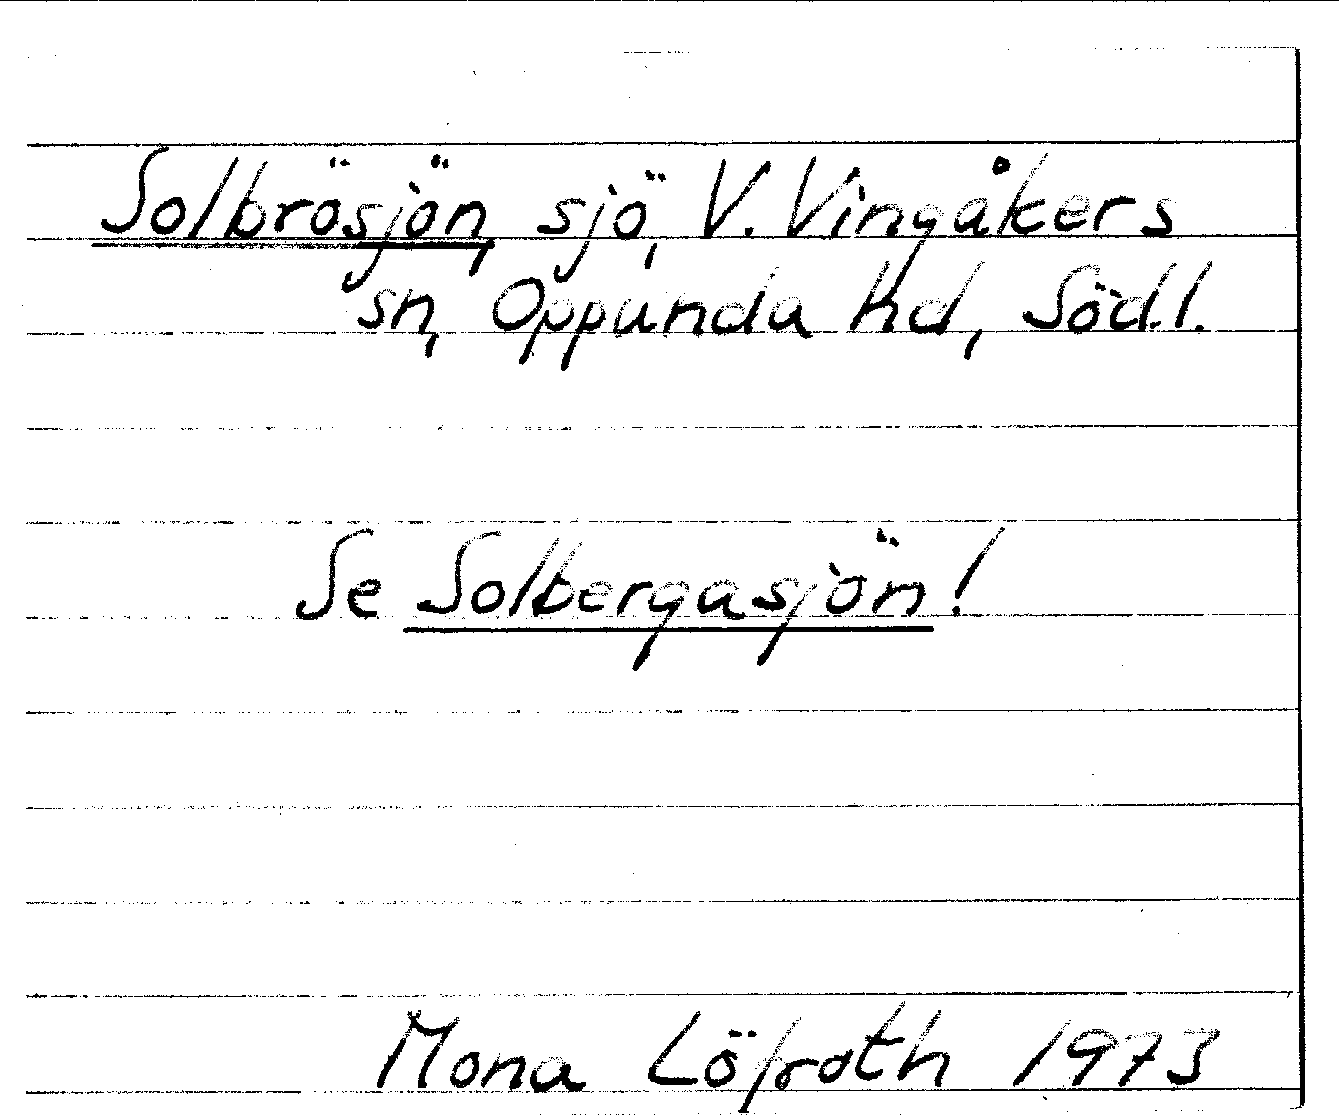 Solbrösjön, sjö, V. Vingåkers
sn, Oppunda hd, Söd.l.
Se Solbergasjön!
Mona Löfroth 1973